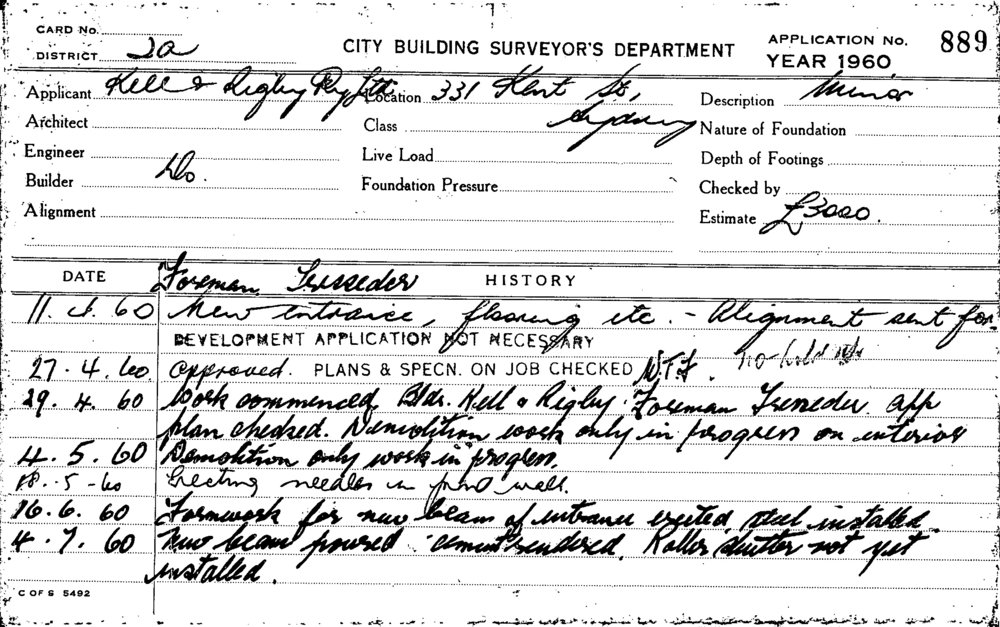 CARD No.
DISTRICT 2a
CITY BUILDING SURVEYOR'S DEPARTMENT
APPLICATION No. 889
YEAR 1960
Applicant Kell & Rigby Pty Ltd Location 331 Kent St, Description Minor
Architect Class Sydney Nature of Foundation
Engineer Live Load Depth of Footings
Builder Do. Foundation Pressure Checked by
Alignment Estimate £3000.
DATE Foreman Treseder HISTORY
11. 4. 60 New entrance, flooring etc. - Alignment sent for
DEVELOPMENT APPLICATION NOT NECESSARY
27. 4. 60. approved. PLANS & SPECN. ON JOB CHECKED N.T.F. no-hold
29. 4. 60 Work commenced Bldr. Kell & Rigby. Foreman Treseder app
plan checked. Demolition work only in progress on interior
4. 5. 60 Demolition only work in progress.
18. 5 - 60 Erecting needles in wall.
16. 6. 60 Formwork for new beam of entrance erected steel installed.
4. 7. 60 New beam poured cement rendered. Roller shutter not yet
installed.
C OF S 5492